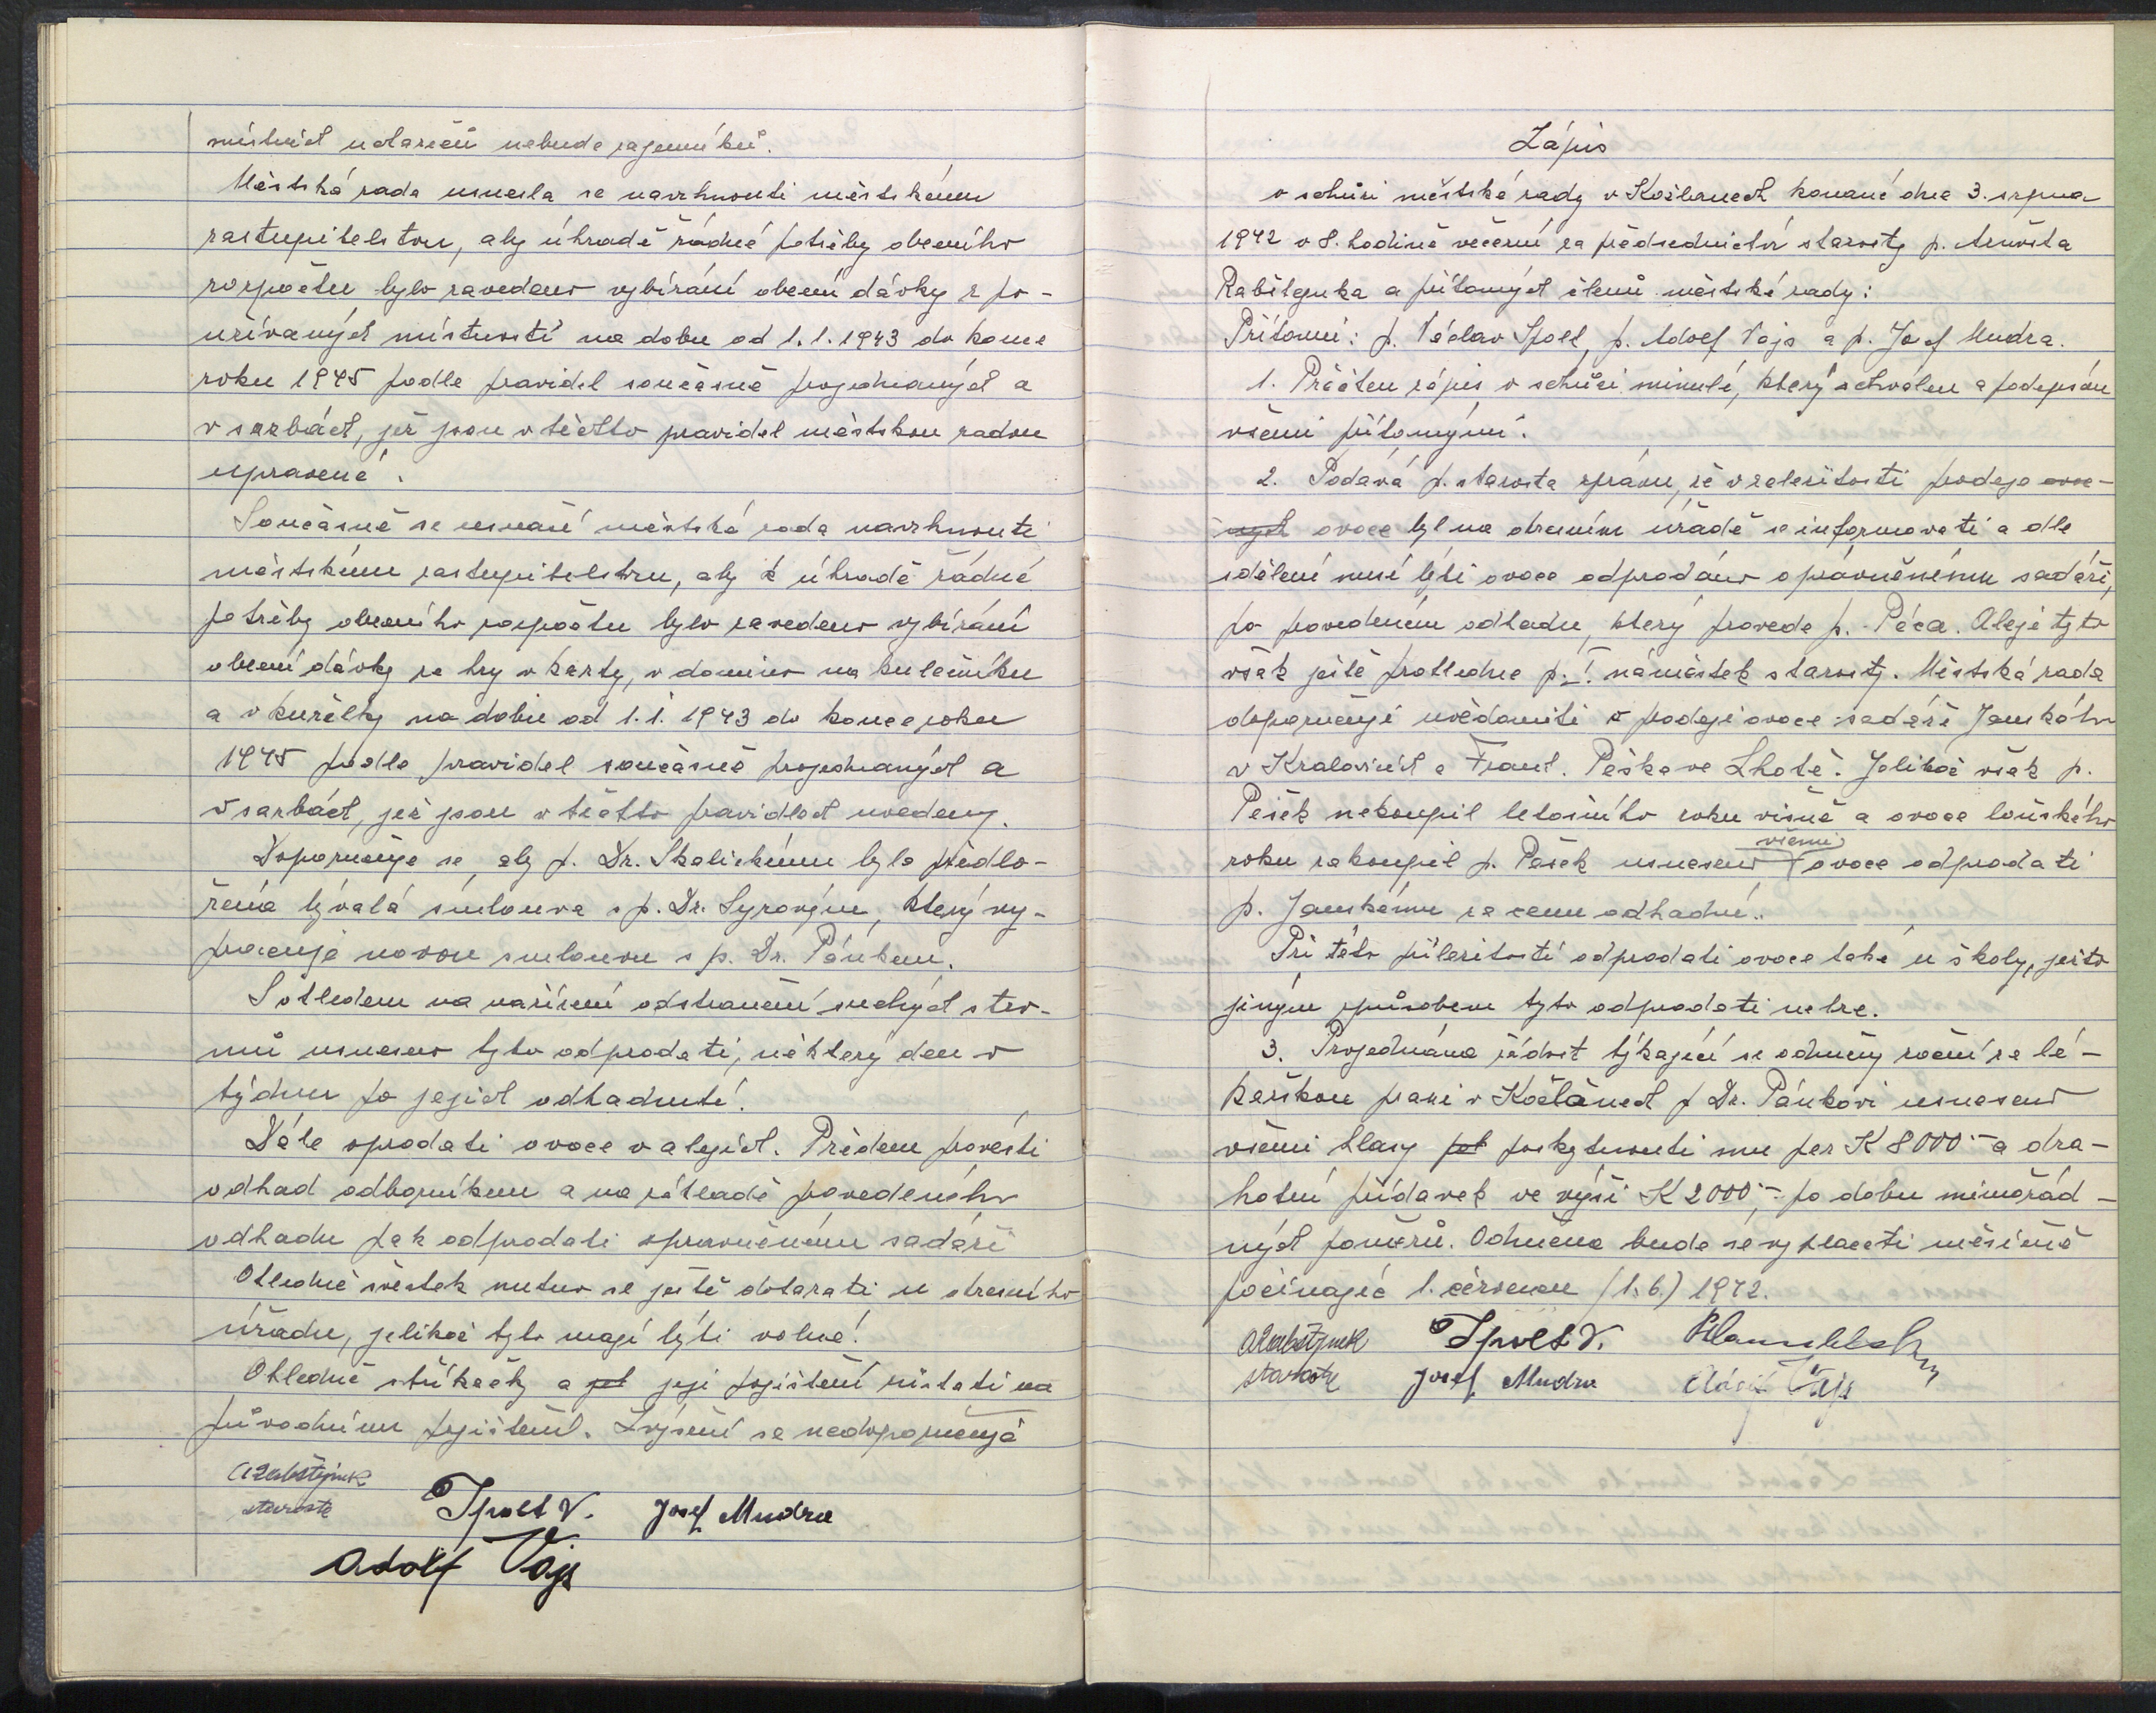 místních notariátů nebude zájemníků.
Městská rada usnesla se navrhnouti městskému
zastupitelstvu, aby úhradě řádné potřeby obecního
rozpočtu bylo zavedeno vybírání obecní dávky z po-
užívaných místností na dobu od 1.1.1943 do konce
roku 1945 podle pravidel současně projednaných a
v sazbách, jež jsou v těchto pravidel městskou radou
upravené.
Současně se usnáší městská rada navrhnouti
městskému zastupitelstvu, aby k úhradě řádné
potřeby obecního rozpočtu bylo zavedeno vybírání
obecní dávky ze hry v karty, v domino na kulečníku
a v kuželky na dobu od 1.1.1943 do konce roku
1945 podle pravidel současně projednaných a
v sazbách, jež jsou v těchto pravidlech uvedeny.
Doporučuje se, aby p. Dr. Skalickému byla předlo-
žena bývalá smlouva s p. Dr. Syrovým, který vy-
pracuje novou smlouvu s p. Dr. Pánkem.
S ohledem na nařízení odstranění suchých stro-
mů usneseno tyto odprodati, některý den v
týdnu po jejich odhadnutí.
Dále prodati ovoce v alejích. Předem provésti
odhad odborníkem a na základě provedeného
odhadu pak odprodati oprávněnému sadaři
Ohledně švestek nutno se ještě dotazati u okresního
úřadu, jelikož tyto mají býti volné.
Ohledně stříkačky a její pojištění zůstati na
původním pojištění. Zvýšení se nedoporučuje
ARabštejnek
starosta Spolt V. Josef Mudra
Adolf Vajs
Zápis
o schůzi městské rady v Kožlanech konané dne 3. srpna
1942 o 8. hodině večerní za předsednictví starosty p. Arnošta
Rabštejnka a přítomných členů městské rady:
Přítomni: p. Václav Spolt, p. Adolf Vajs a p. Josef Mudra.
1. Přečten zápis o schůzi minulé, který schválen a podepsán
všemi přítomnými.
2. Podává p. starosta zprávu, že v záležitosti prodeje ovoc-
ných ovoce byl na okresním úřadě se informovati a dle
sdělení musí býti ovoce odprodáno oprávněnému sadaři,
po provedeném odhadu, který provede p. Péca. Aleje tyto
však ještě prohledne p. I. náměstek starosty. Městská rada
doporučuje uvědomiti o prodeji ovoce sadaře Janského
v Kralovicích a Frant. Peška ve Lhotě. Jelikož však p.
Pešek nekoupil letošního roku višně a ovoce loňského
roku zakoupil p. Pešek usneseno všemi ovoce odprodati
p. Janskému za cenu odhadní.
Při této příležitosti odprodati ovoce také u školy, ježto
jiným způsobem tyto odprodati nelze.
3. Projednána žádost týkající se odměny roční za lé-
kařskou praxi v Kožlanech p Dr. Pánkovi usneseno
všemi hlasy pos poskytnouti mu per K 8000.- a dra-
hotní přídavek ve výši K 2000.- po dobu mimořád-
ných poměrů. Odměna bude se vypláceti měsíčně
počínajíc 1. červnem (1.6.) 1942.
ARabštejnek Spolt V.
starosta Josef Mudra Adolf Vajs